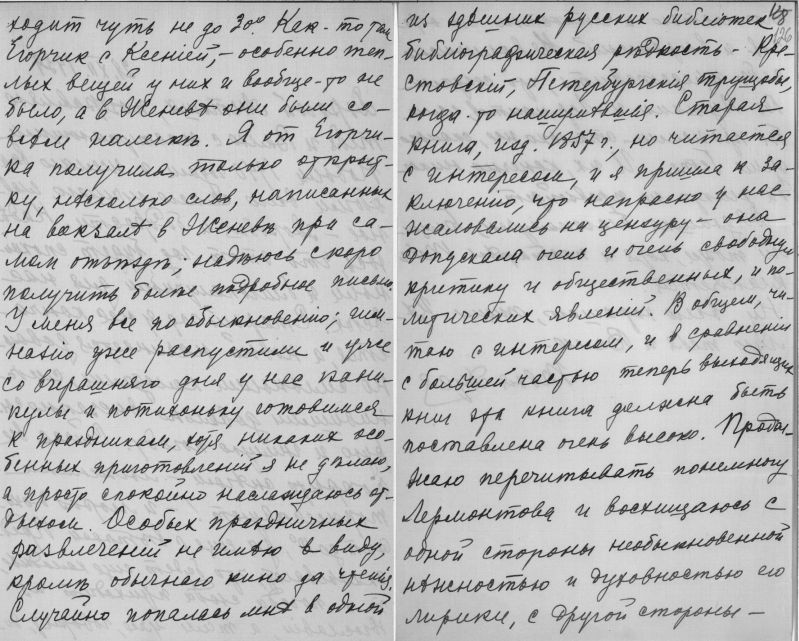 ходит чуть не до 30°. Как-то там
Егорчик с Ксеніей, – особенно теп-
лых вещей у них и вообще-то не
было, а в Женевѣ они были со-
всѣм налегкѣ. Я от Егорчи-
ка получила только открыт-
ку, нѣсколько слов, написанных
на вокзалѣ в Женевѣ при са-
мом отъѣздѣ; надѣюсь скоро
получить болѣе подробное письмо.
У меня все по обыкновению; гим-
назію уже распустили и уже
со вчерашняго дня у нас кани-
кулы и потихоньку готовимся
к праздникам, хотя никаких осо-
бенных приготовлений я не дѣлаю,
а просто спокойно наслаждаюсь от-
дыхом. Особых праздничных
развлеченій не имѣю в виду,
кромѣ обычного кино да чтенія.
Случайно попалась мнѣ в одной
из здѣшних русских библіотек
библіографическая рѣдкость – Кре-
стовскій, Петербургскія трущобы,
когда-то нашумѣвшія. Старая
книга, изд. 1857 г., но читается
с интересом, и я пришла к за-
ключению, что напрасно у нас
жаловались на цензуру – она
допускала очень и очень свободную
критику и общественных, и по-
литических явленій. В общем, чи-
таю с интересом, и в сравненіи
с большей частью теперь выходящих
книг эта книга должна быть
поставлена очень высоко. Продол-
жаю перечитывать понемногу
Лермонтова и восхищаюсь с
одной стороны необыкновенной
нѣжностью и духовностью его
лирики, с другой стороны –